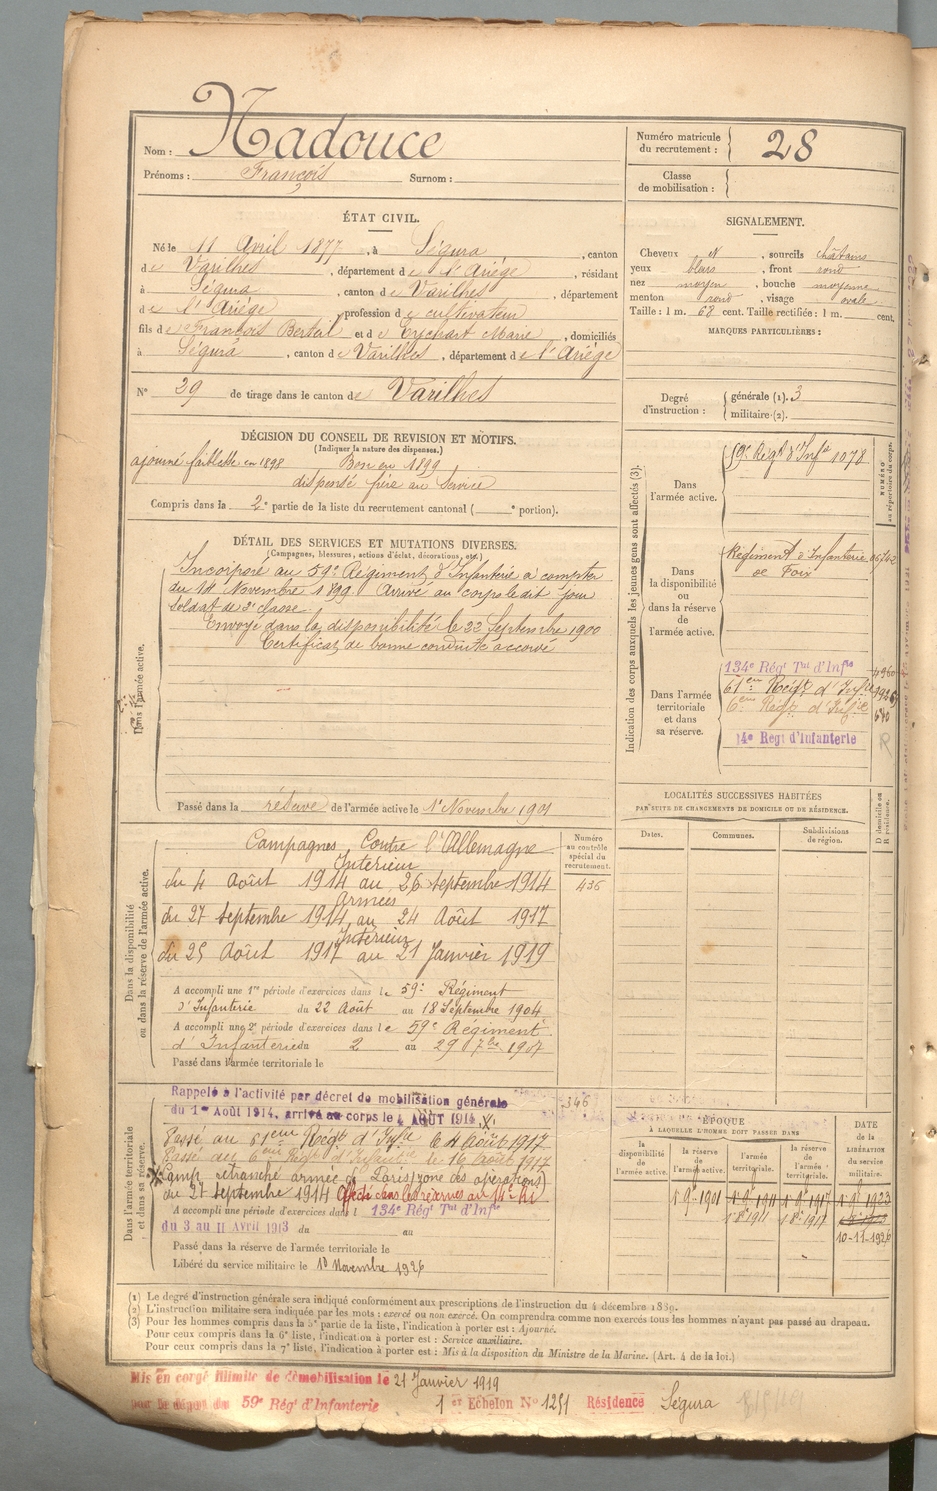 Nom : Nadouce
Prénoms : François Surnom :
Numéro matricule du recrutement : 28
Classe de mobilisation :
ÉTAT CIVIL.
Né le 11 Avril 1877, à Ségura, canton
de Varilhes, département de l'Ariège, résidant
à Ségura, canton de Varilhes, département
de l'Ariège, profession de cultivateur
fils de François Bertail et de Eychart Marie, domiciliés
à Ségura, canton de Varilhes, département de l'Ariège
N° 29 de tirage dans le canton de Varilhes
SIGNALEMENT.
Cheveux N, sourcils châtains
yeux bleus, front rond
nez moyen, bouche moyenne
menton rond, visage ovale
Taille : 1 m. 68 cent. Taille rectifiée : 1 m. cent.
MARQUES PARTICULIÈRES :
Degré d'instruction : générale (1). 3
militaire (2).
DÉCISION DU CONSEIL DE REVISION ET MOTIFS.
(Indiquer la nature des dispenses.)
ajourné faiblesse en 1898 Bon en 1899
dispensé frère au service
Compris dans la 2e partie de la liste du recrutement cantonal ( e portion).
DÉTAIL DES SERVICES ET MUTATIONS DIVERSES.
(Campagnes, blessures, actions d'éclat, décorations, etc.)
Dans l'armée active.
Incorporé au 59e Régiment d'Infanterie à compter
du 14 Novembre 1899. Arrivé au corps ledit jour
Soldat de 2e classe.
Envoyé dans la disponibilité le 22 Septembre 1900
Certificat de bonne conduite accordé
Passé dans la réserve de l'armée active le 1er Novembre 1901
Indication des corps auxquels les jeunes gens sont affectés (3).
NUMÉRO au répertoire du corps.
Dans l'armée active.
59e Régt d'Infie 1078
Dans la disponibilité ou dans la réserve de l'armée active.
Régiment d'Infanterie
de Foix
Dans l'armée territoriale et dans sa réserve.
134e Régt Tal d'Infie
61em Régt d'Infie
6em Régt d'Infie
14e Regt d'Infanterie
LOCALITÉS SUCCESSIVES HABITÉES
PAR SUITE DE CHANGEMENTS DE DOMICILE OU DE RÉSIDENCE.
Dates. Communes. Subdivisions de région.
D domicile ou R résidence.
Dans la disponibilité ou dans la réserve de l'armée active.
Numéro au contrôle spécial du recrutement.
436
Campagnes Contre l'Allemagne
Intérieur
du 4 Août 1914 au 26 Septembre 1914
Armées
du 27 Septembre 1914 au 24 Août 1917
Intérieur
du 25 Août 1917 au 21 Janvier 1919
A accompli une 1re période d'exercices dans le 59e Régiment
d'Infanterie du 22 Août au 18 Septembre 1904
A accompli une 2e période d'exercices dans le 59e Régiment
d'Infanterie du 2 au 29 7bre 1907
Passé dans l'armée territoriale le
Dans l'armée territoriale et dans sa réserve.
346
Rappelé à l'activité par décret de mobilisation générale
du 1er Août 1914, arrivé au corps le 4 AOÛT 1914
Passé au 61eme Régt d'Infie le 4 Août 1917
Passé au 6eme Régt d'Infanterie le 16 Août 1917
Camp retranché armée de Paris (zone des opérations)
du 27 Septembre 1914 Affecté dans les réserves au 14e
A accompli une période d'exercices dans l 134e Régt Tal d'Infie
du 3 au 11 Avril 1913 du au
Passé dans la réserve de l'armée territoriale le
Libéré du service militaire le 10 Novembre 1926
ÉPOQUE
À LAQUELLE L'HOMME DOIT PASSER DANS
la disponibilité de l'armée active.
la réserve de l'armée active.
l'armée territoriale.
la réserve de l'armée territoriale.
DATE de la LIBÉRATION du service militaire.
1er 9e 1901 1er 9e 1911 1er 9e 1917 1er 9e 1923
1er 8e 1911 1er 8e 1917
10-11-1926
(1) Le degré d'instruction générale sera indiqué conformément aux prescriptions de l'instruction du 4 décembre 1889.
(2) L'instruction militaire sera indiquée par les mots : exercé ou non exercé. On comprendra comme non exercés tous les hommes n'ayant pas passé au drapeau.
(3) Pour les hommes compris dans la 5e partie de la liste, l'indication à porter est : Ajourné.
Pour ceux compris dans la 6e liste, l'indication à porter est : Service auxiliaire.
Pour ceux compris dans la 7e liste, l'indication à porter est : Mis à la disposition du Ministre de la Marine. (Art. 4 de la loi.)
Mis en congé illimité de démobilisation le 21 Janvier 1919
par le dépôt du 59e Régt d'Infanterie 1er Echelon N° 1251 Résidence Ségura